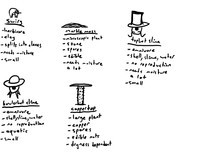 - herbivore
- clay
- splits into clones
- needs moisture
- small
marble moss
- microscopic plant
- stone
- spores
- edible
- needs moisture
a lot
tophat slime
- omnivore
- jelly, slime, water
- no reproduction
- needs moisture
a lot
- small
bowlerhat slime
- omnivore
- jelly, slime, water
- no reproduction
- aquatic
- small
coppertop
- large plant
- copper
- spores
- edible nuts
- dryness dependent